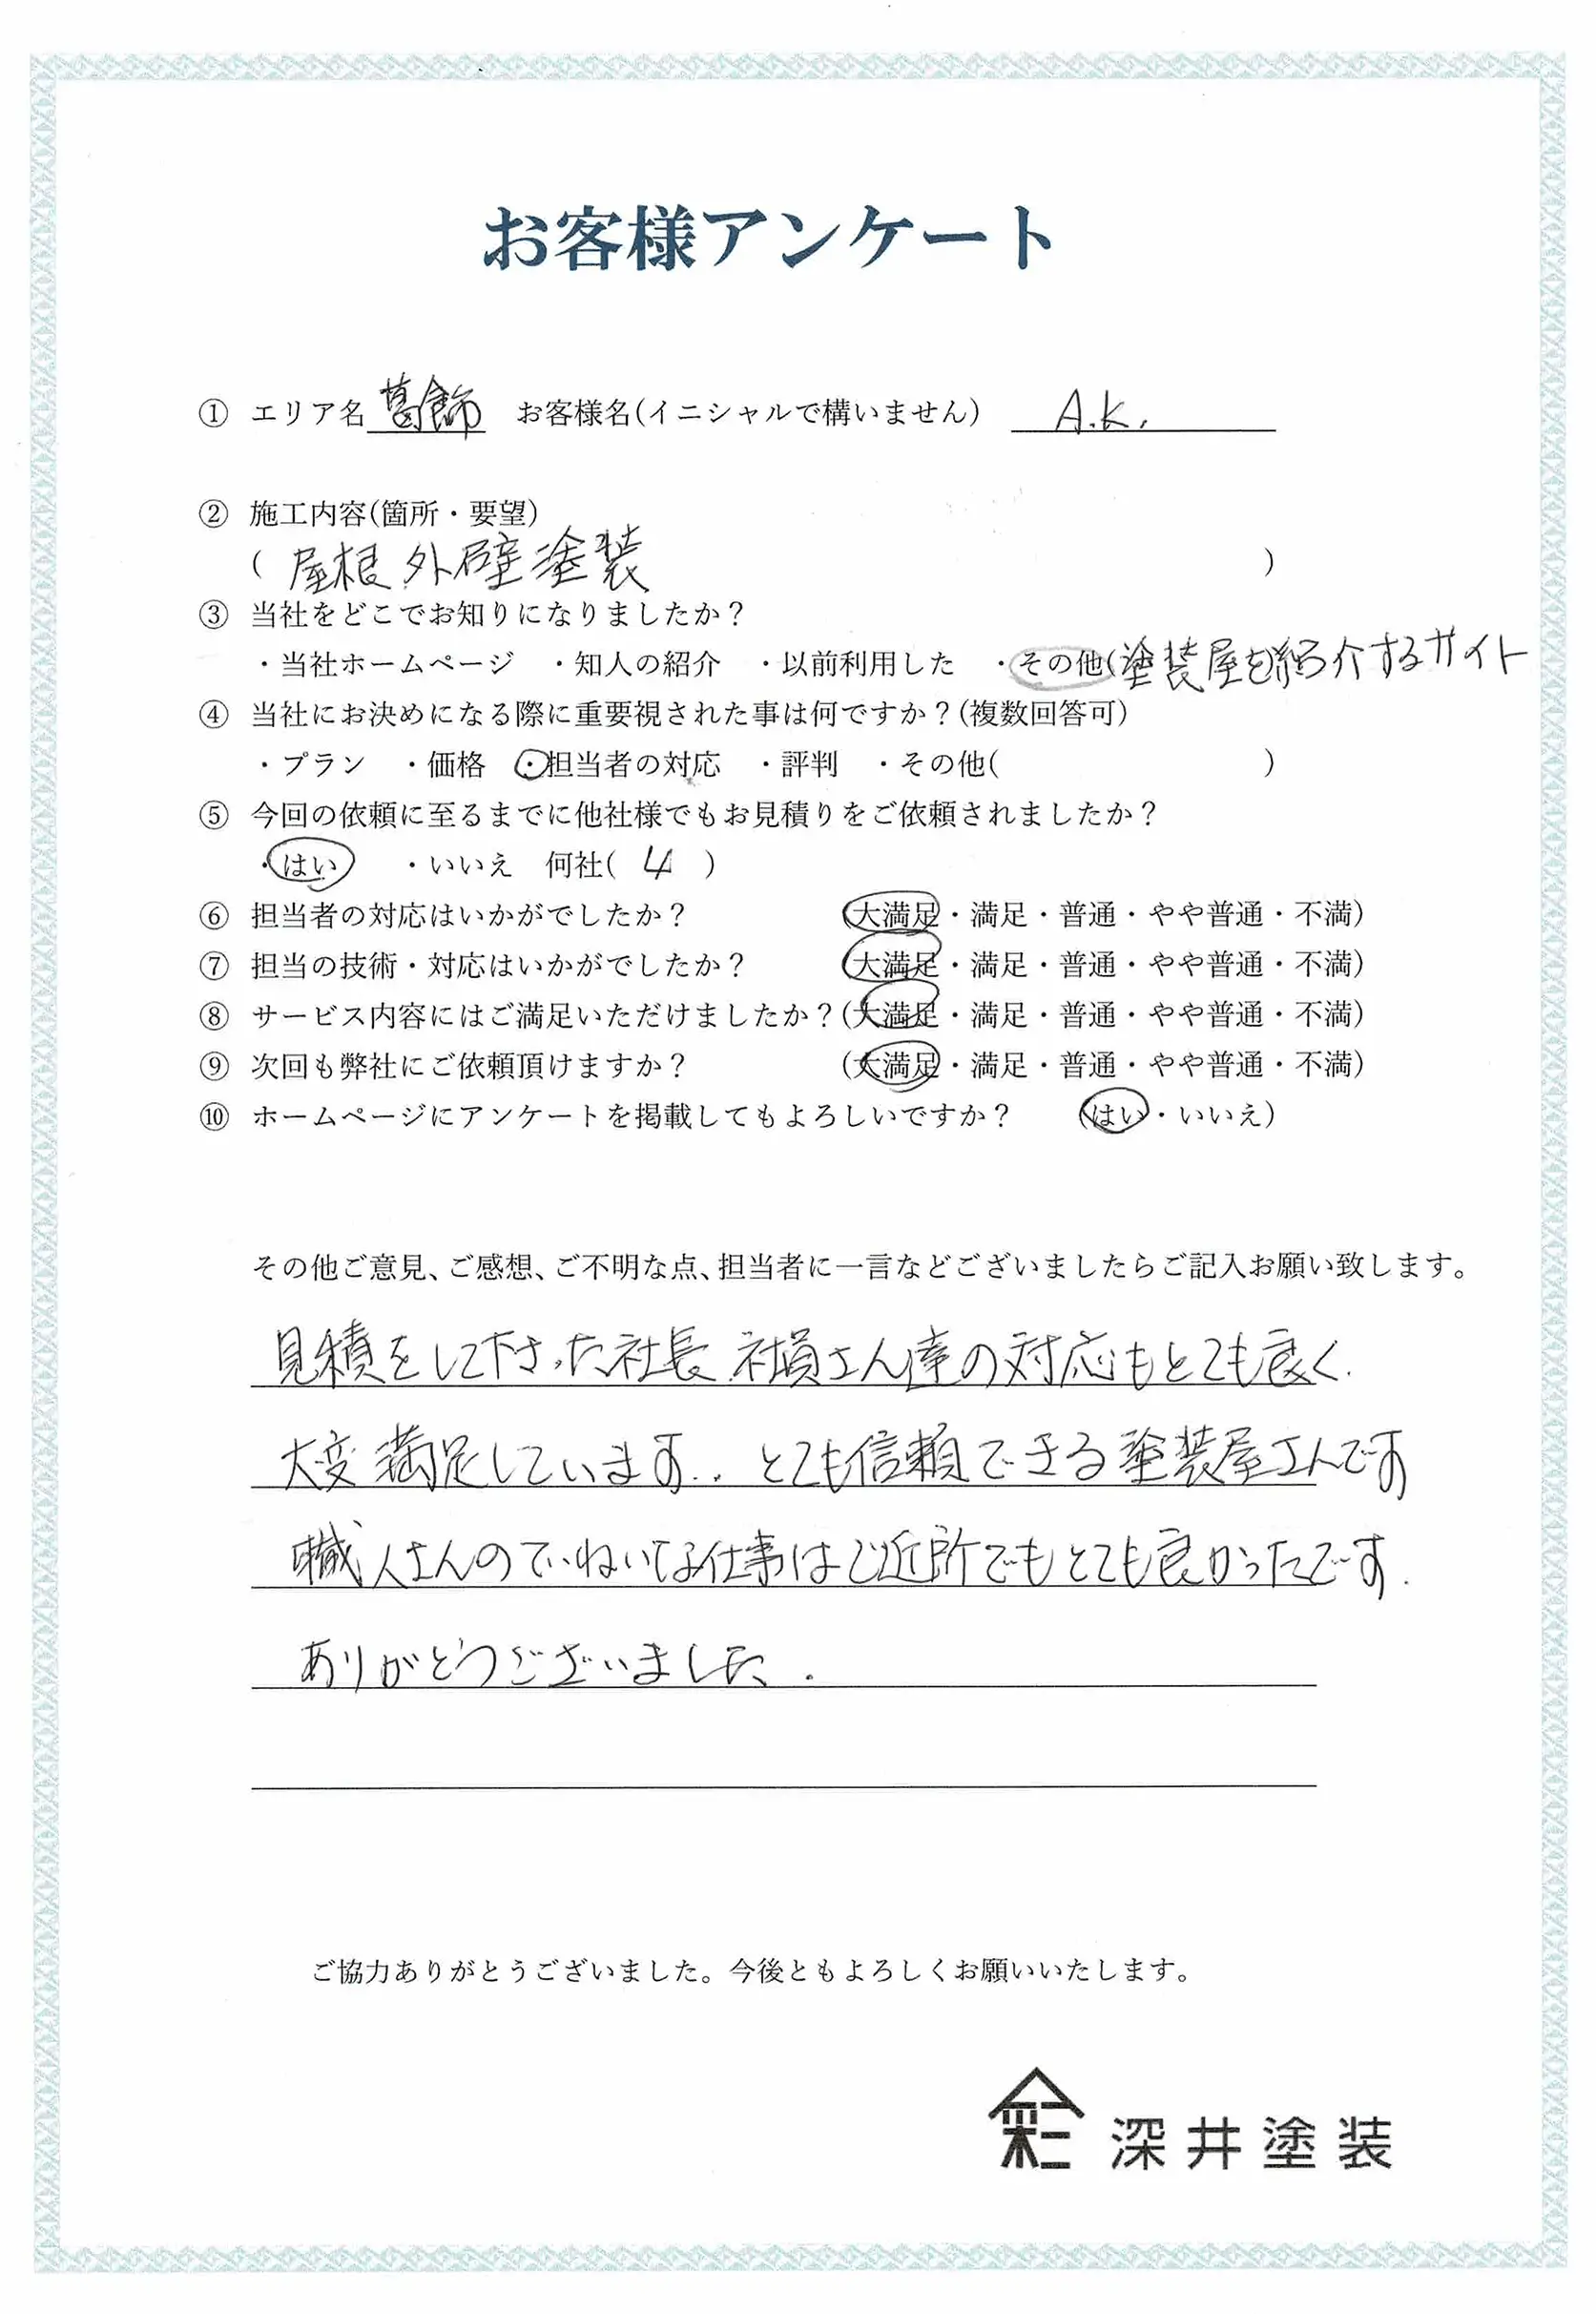 お客様アンケート
① エリア名 葛飾 お客様名(イニシャルで構いません) A.K.
② 施工内容(箇所・要望)
( 屋根 外壁塗装 )
③ 当社をどこでお知りになりましたか？
・当社ホームページ ・知人の紹介 ・以前利用した ・その他(塗装屋を紹介するサイト
④ 当社にお決めになる際に重要視された事は何ですか？(複数回答可)
・プラン ・価格 ・担当者の対応 ・評判 ・その他( )
⑤ 今回の依頼に至るまでに他社様でもお見積りをご依頼されましたか？
・はい ・いいえ 何社( 4 )
⑥ 担当者の対応はいかがでしたか？ (大満足・満足・普通・やや普通・不満)
⑦ 担当の技術・対応はいかがでしたか？ (大満足・満足・普通・やや普通・不満)
⑧ サービス内容にはご満足いただけましたか？(大満足・満足・普通・やや普通・不満)
⑨ 次回も弊社にご依頼頂けますか？ (大満足・満足・普通・やや普通・不満)
⑩ ホームページにアンケートを掲載してもよろしいですか？ (はい・いいえ)
その他ご意見、ご感想、ご不明な点、担当者に一言などございましたらご記入お願い致します。
見積をして下さった社長 社員さん達の対応もとても良く.
大変満足しています.. とても信頼できる塗装屋さんです
職人さんのていねいな仕事はご近所でもとても良かったです.
ありがとうございました.
ご協力ありがとうございました。今後ともよろしくお願いいたします。
彩 深井塗装